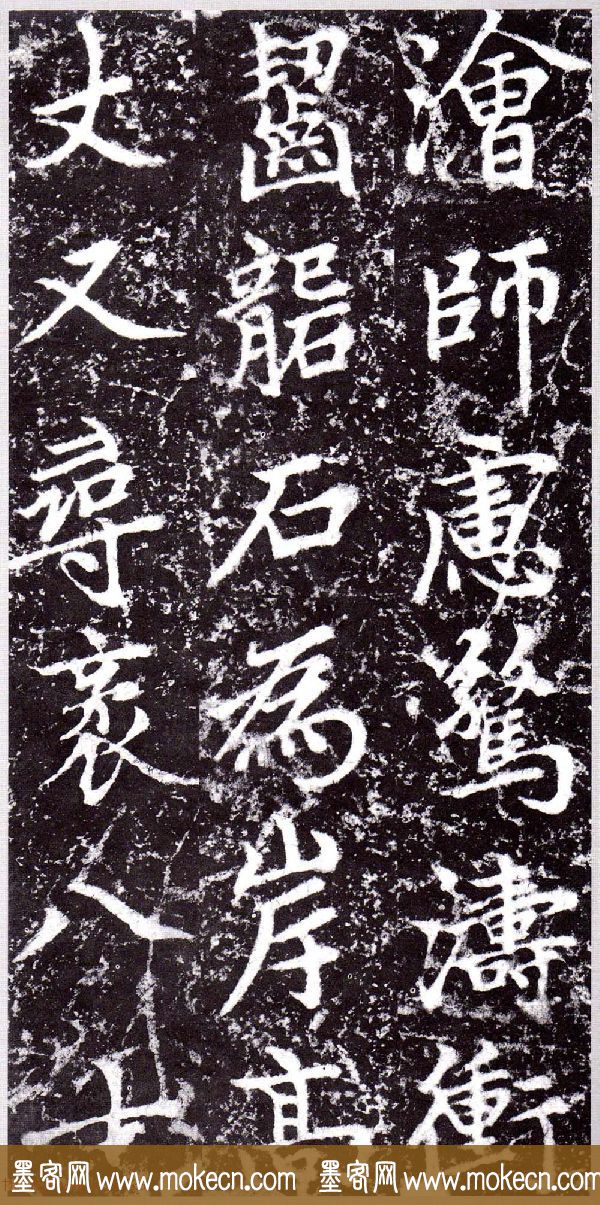 澮師慮驚濤衝
齧礱石為岸高
丈又尋袤八十
墨客网 www.mokecn.com 墨客网 www.mokecn.com